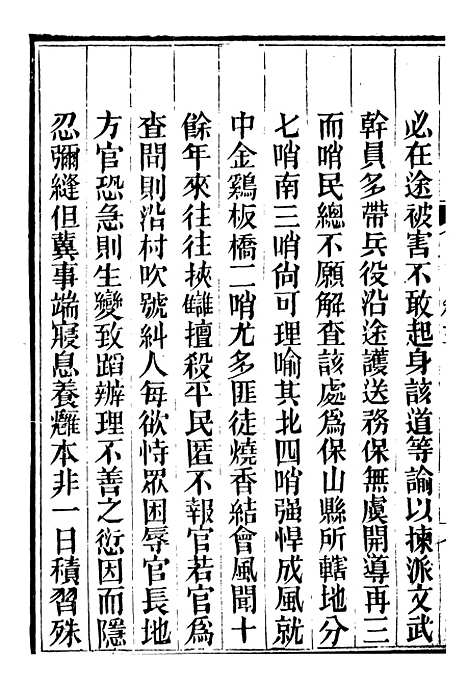 必在途被害不敢起身該道等諭以揀派文武
幹員多帶兵役沿途護送務保無虞開導再三
而哨民總不願解查該處爲保山縣所轄地分
七哨南三哨尙可理喻其北四哨强悍成風就
中金鷄板橋二哨尤多匪徒燒香結會風聞十
餘年來往往挾讎擅殺平民匿不報官若官爲
查問則沿村吹號糾人每欲恃眾困辱官長地
方官恐急則生變致蹈辦理不善之愆因而隱
忍彌縫但冀事端寢息養癰本非一日積習殊